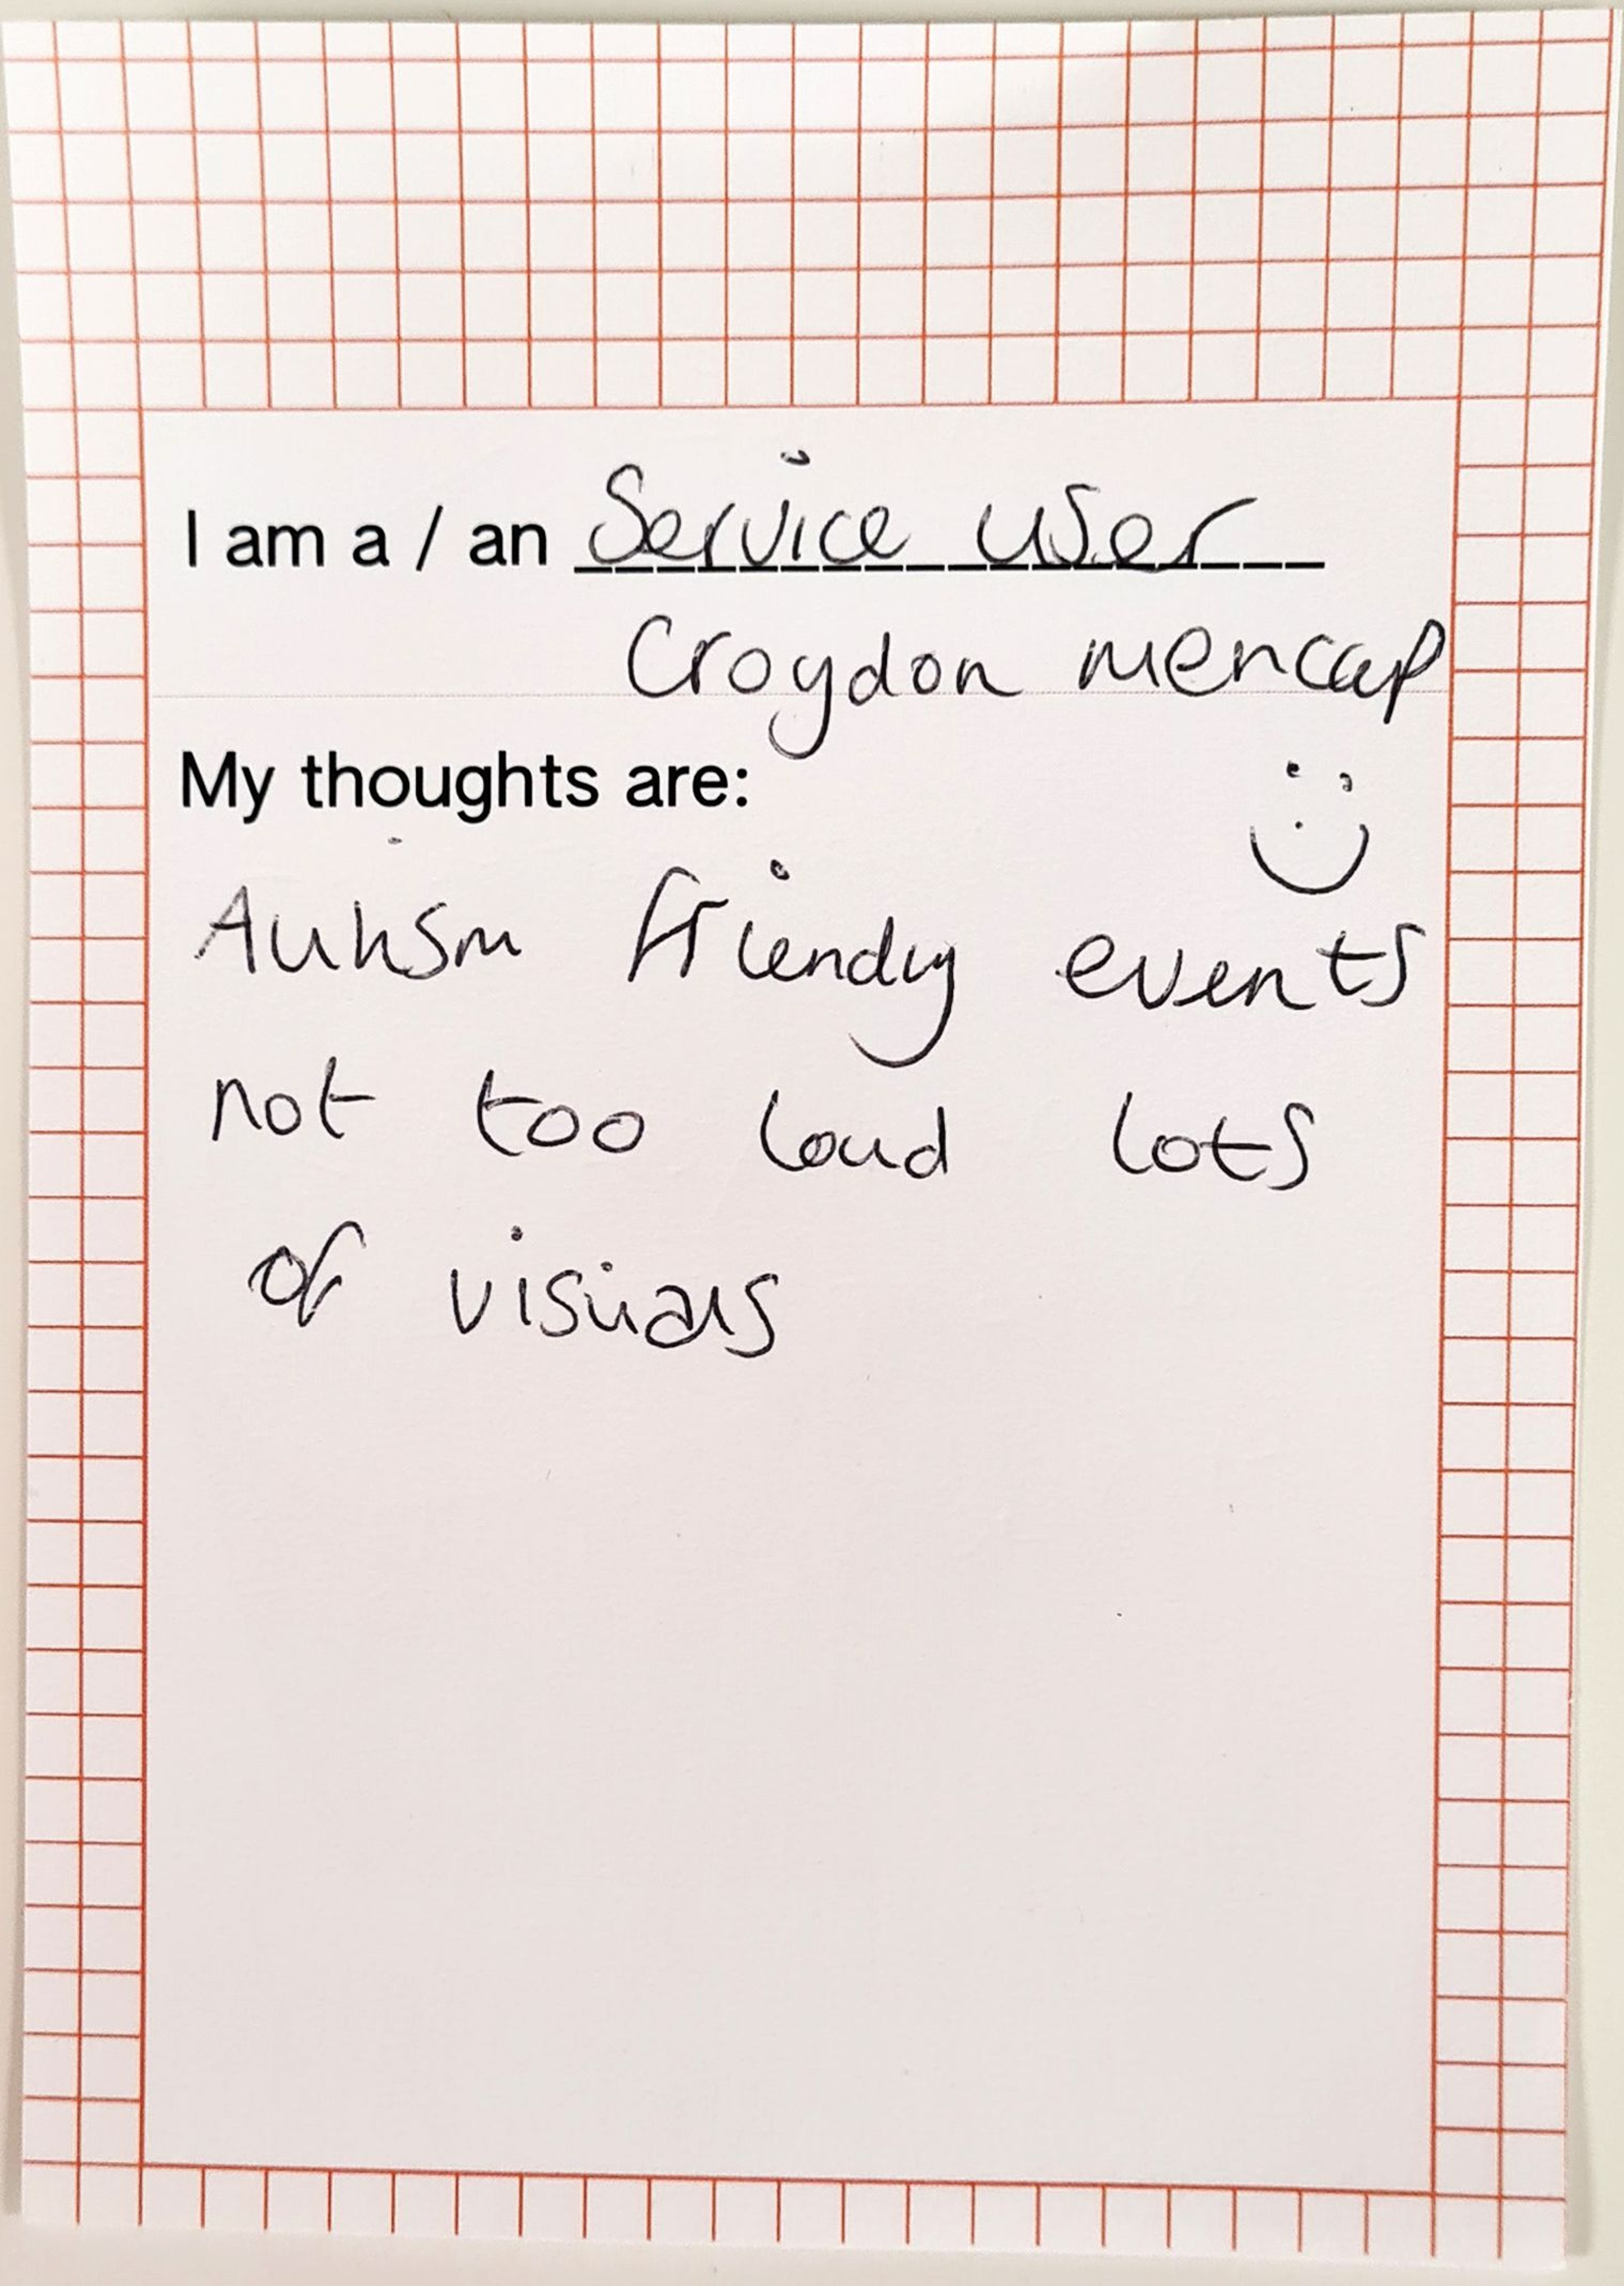 I am a / an Service user
Croydon mencap
My thoughts are:
Autism friendly events
not too loud lots
of visuals